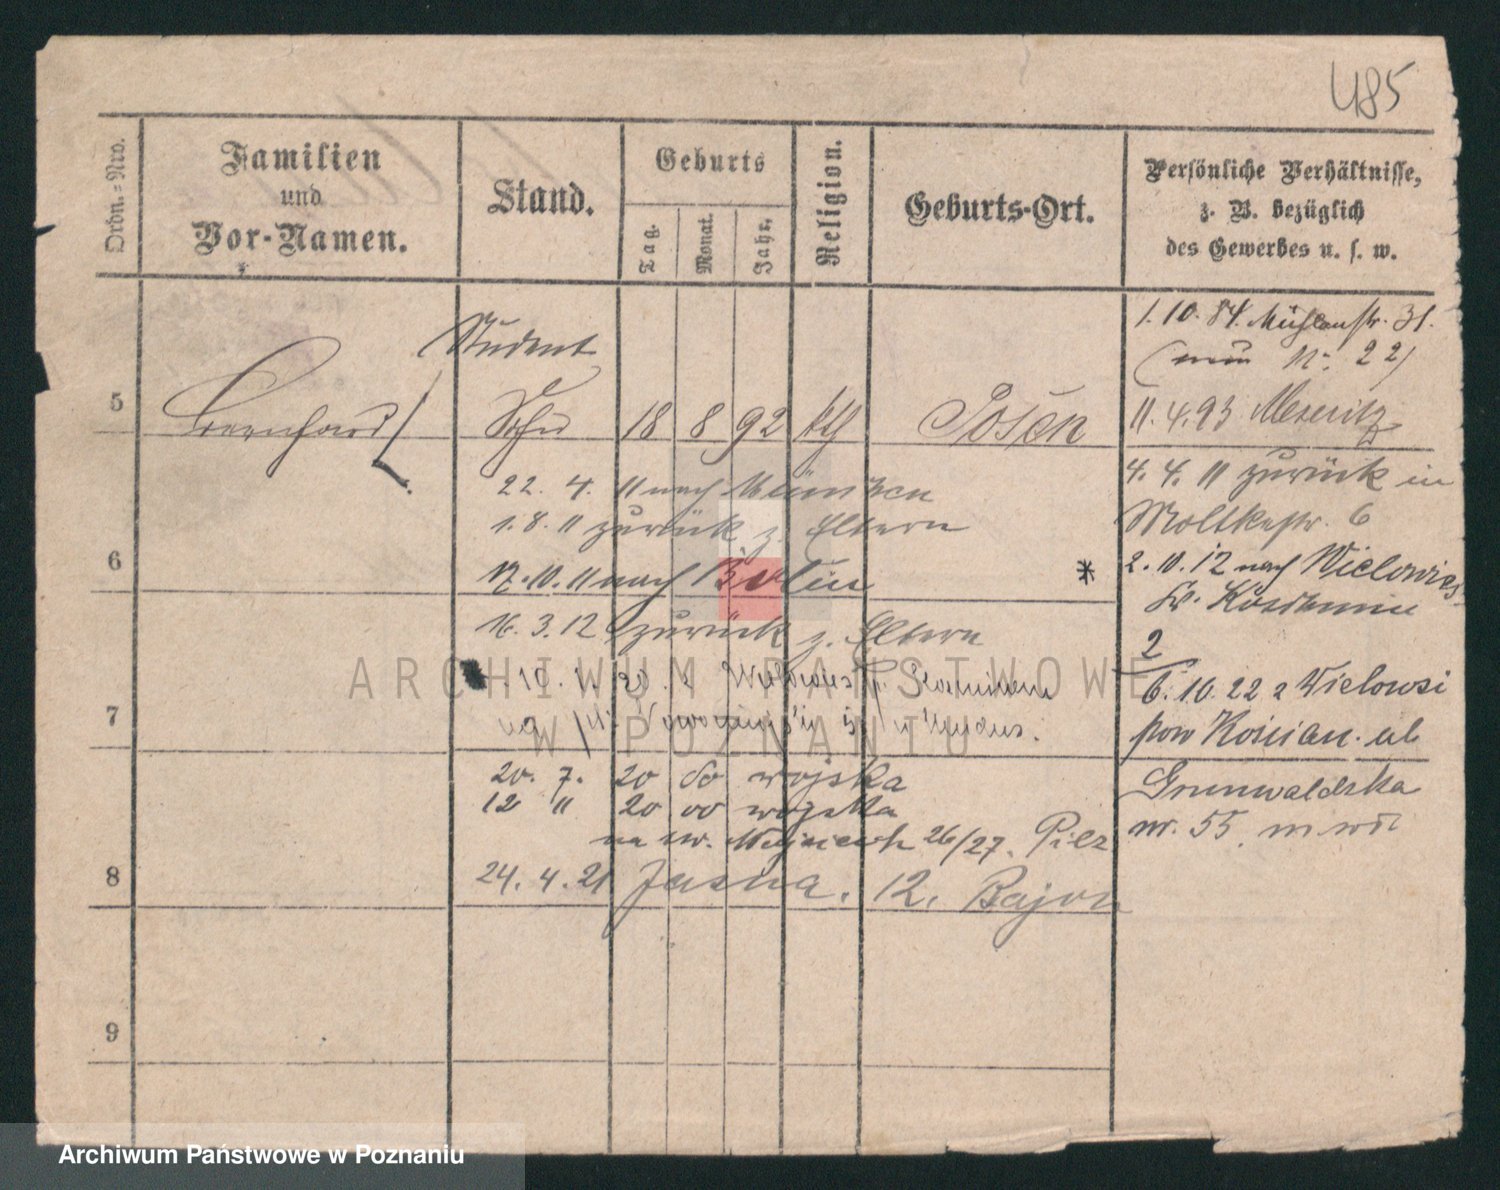 485
Ordn.=Nro.
Familien
und
Vor-Namen.
Stand.
Geburts
Tag.
Monat.
Jahr.
Religion.
Geburts-Ort.
Persönliche Verhältnisse,
z. B. bezüglich
des Gewerbes u. s. w.
1. 10. 84. Mühlenstr. 31.
(nun N: 22)
Student
5
Bernhard
Sohn
18
8
92
kth
Posen
11. 4. 93 Meseritz
4. 4. 11 zurück in
Moltkestr. 6
22. 4. 11 nach München
1. 8. 11 zurück z. Eltern
6
17. 10. 11 nach Berlin
*
2. 10. 12 nach Wielowies
Kr. Koschmin
16. 3. 12 zurück z. Eltern
2
10. 1. 20. z
6. 10. 22 z Wielowsi
7
pow Kościan. ul
20. 7. 20 do wojska
12 " 20 do wojska
Grunwaldzka
nr. 55
na św. Wojciech 26/27. Pilz
8
24. 4. 21 Jasna. 12. Bajon
9
ARCHIWUM PAŃSTWOWE
W POZNANIU
Archiwum Państwowe w Poznaniu